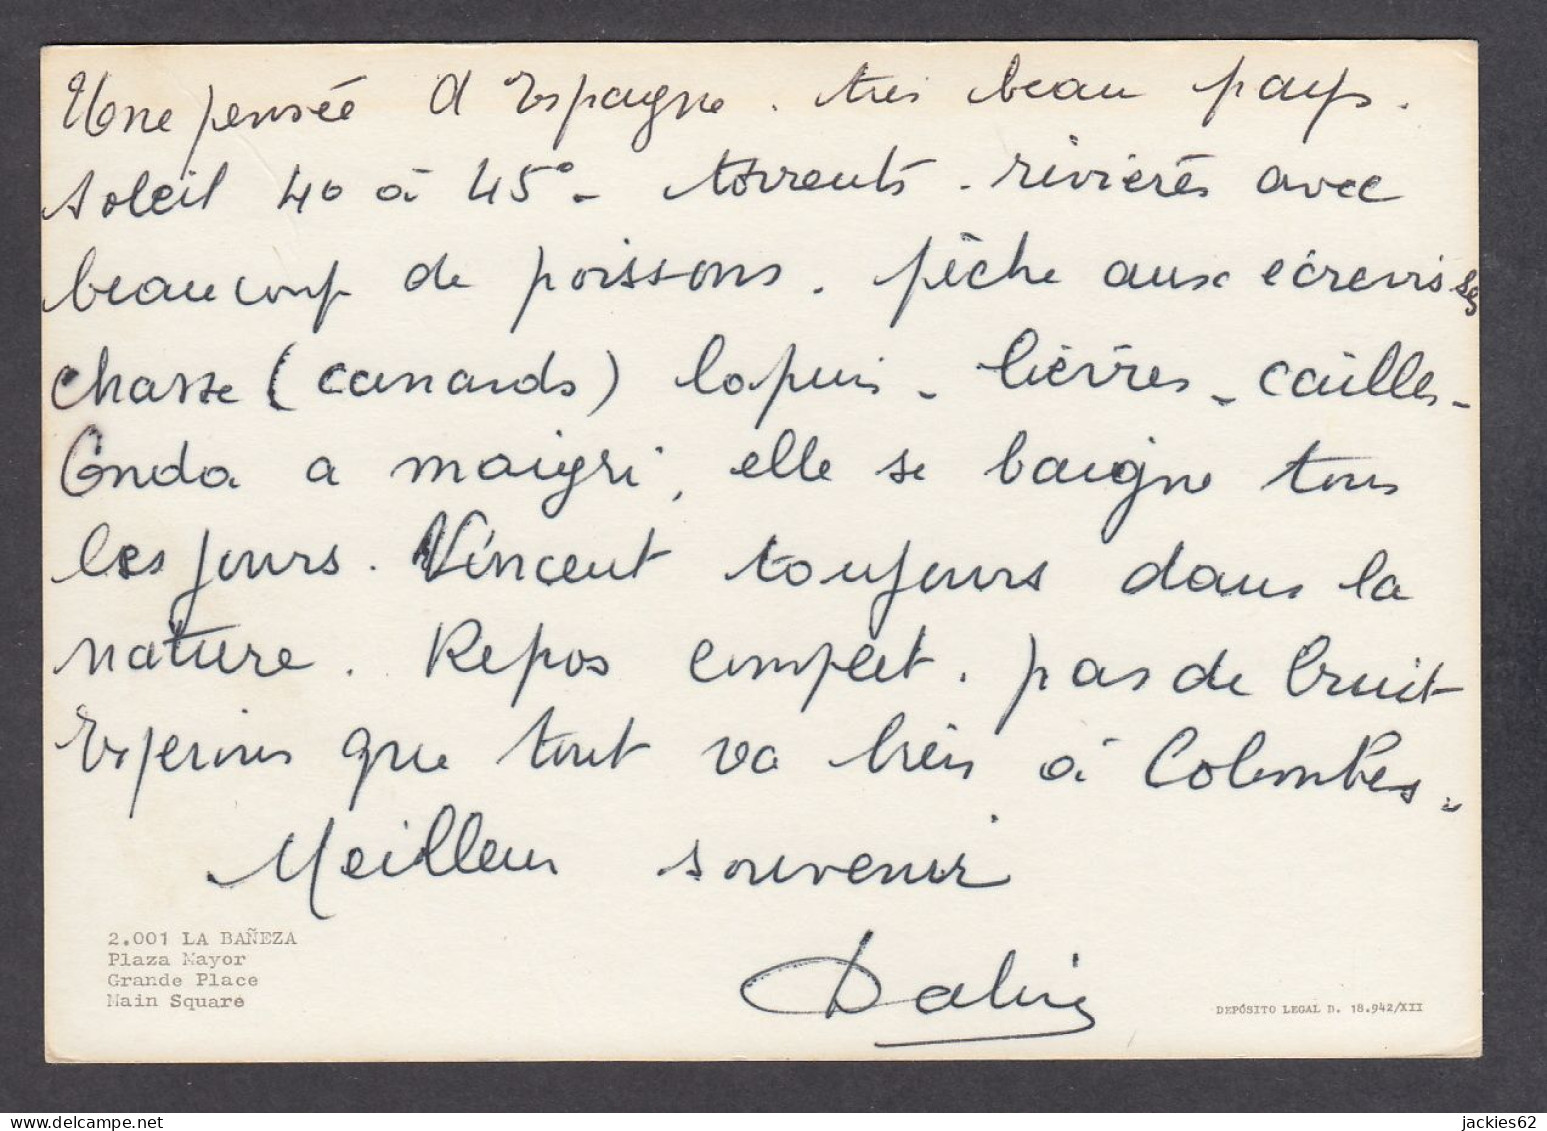 Une pensée d'Espagne. très beau pays.
Soleil 40 à 45° - torrents. rivières avec
beaucoup de poissons. pêche aux écrevisses
chasse (canards) lapins - lièvres - cailles -
a maigri, elle se baigne tous
les jours. Vincent toujours dans la
nature. Repos complet. pas de bruit
Esperons que tout va bien à Colombes.
Meilleur souvenir
2.001 LA BAÑEZA
Plaza Mayor
Grande Place
Main Square
DEPÓSITO LEGAL B. 18.942/XII
jackies62